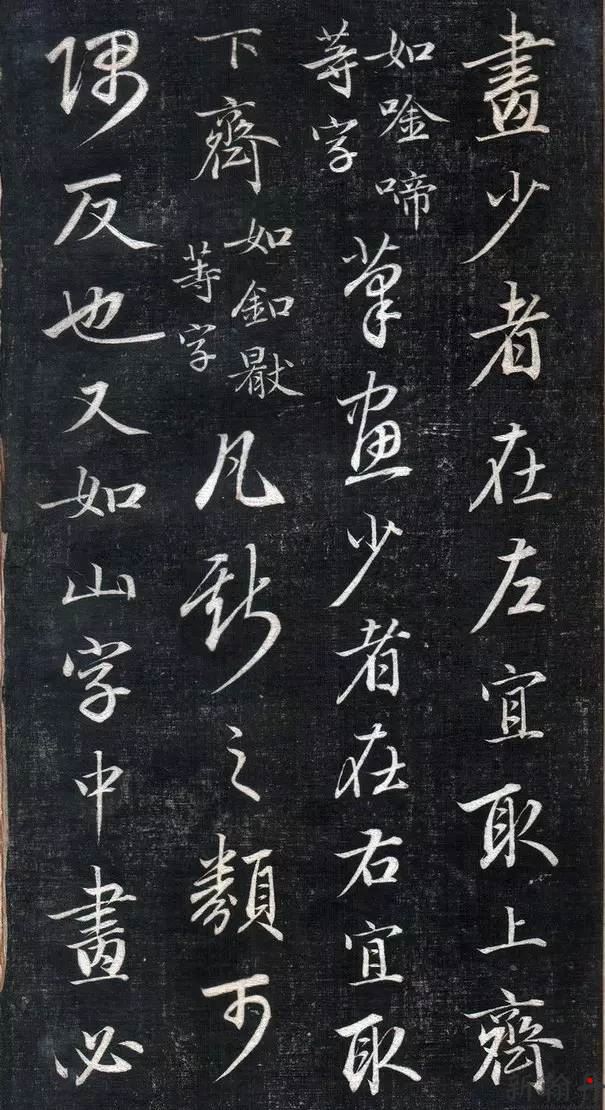 畫少者在左宜取上齊
如唫啼
等字
筆畫少者在右宜取
下齊
如釦
等字
凡斯之類可
隅反也又如山字中畫必
新翰